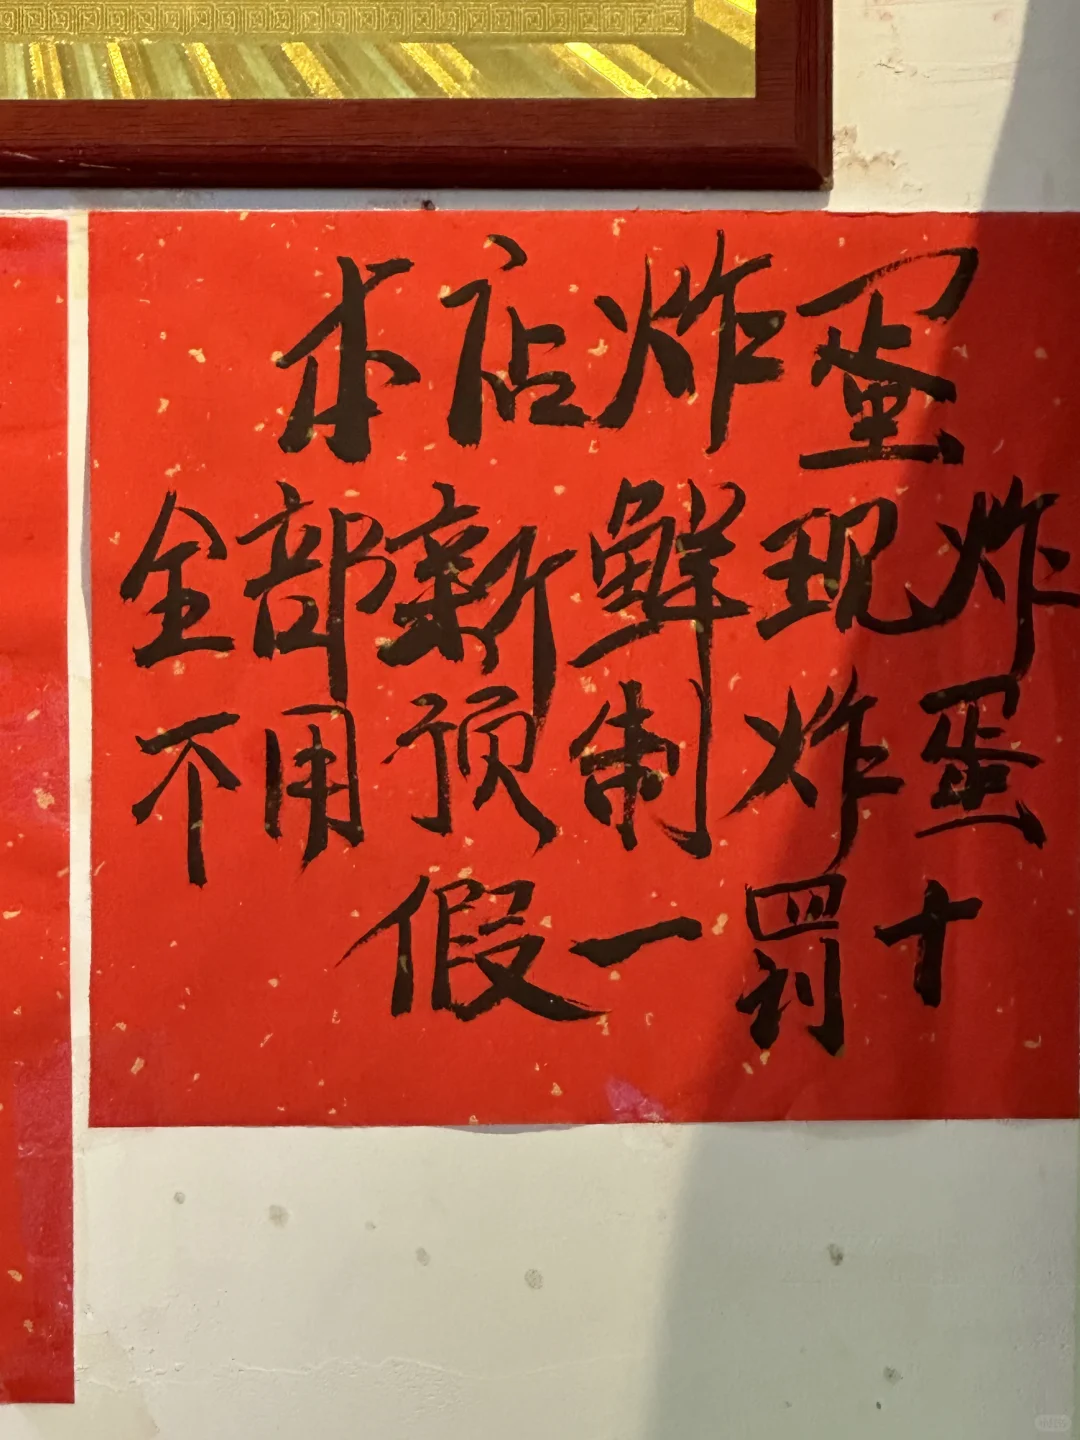 本店炸蛋
全部新鲜现炸
不用预制炸蛋
假一罚十